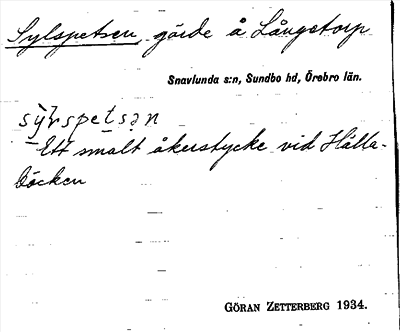 Sylspetsen, gärde å Långstorp
Snavlunda s:n, Sundbo hd, Örebro län.
Ett smalt åkerstycke vid Hälla-
bäcken
GÖRAN ZETTERBERG 1934.